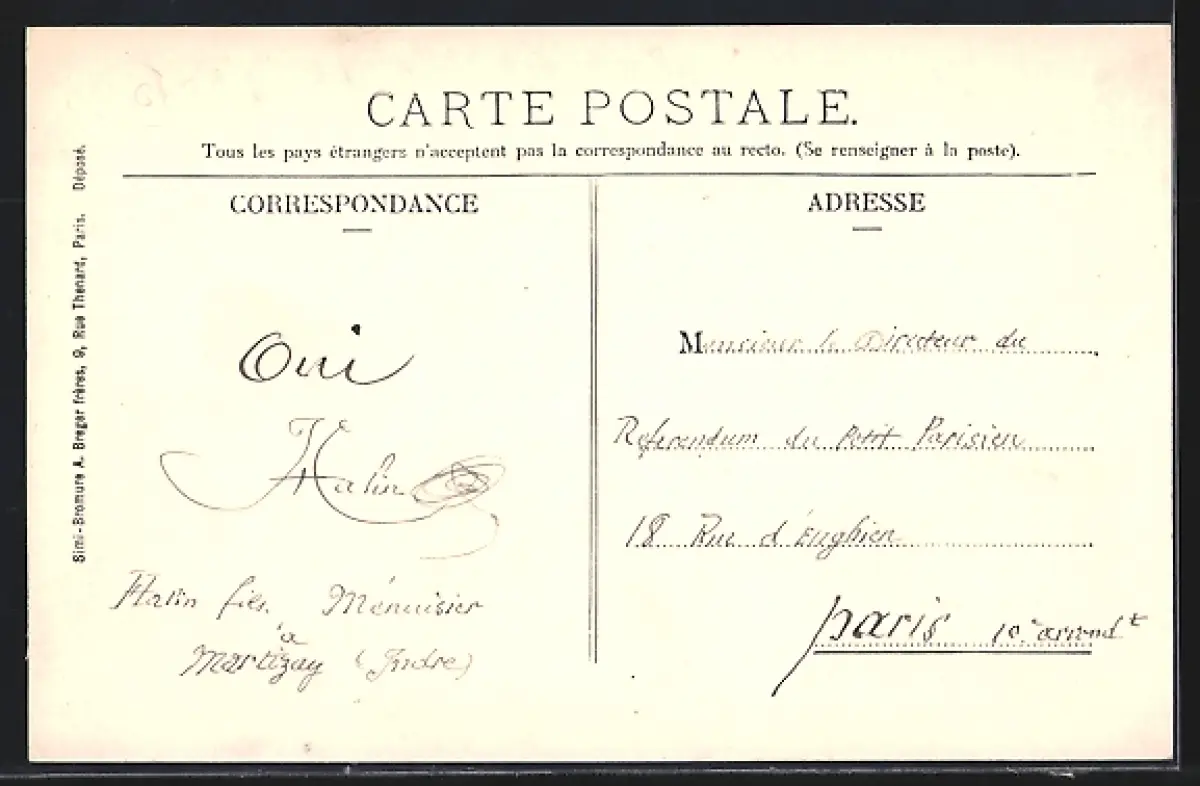 CARTE POSTALE.
Tous les pays étrangers n'acceptent pas la correspondance au recto. (Se renseigner à la poste).
CORRESPONDANCE
Oui
Halin
Halin fils. Ménuisier
à
Martizay (Indre)
ADRESSE
Monsieur le Directeur du
Referendum du Petit Parisien
18 Rue d'Enghien
Paris 10e arrondt
Simi-Bromure A. Breger frères, 9, Rue Thénard, Paris. Déposé.